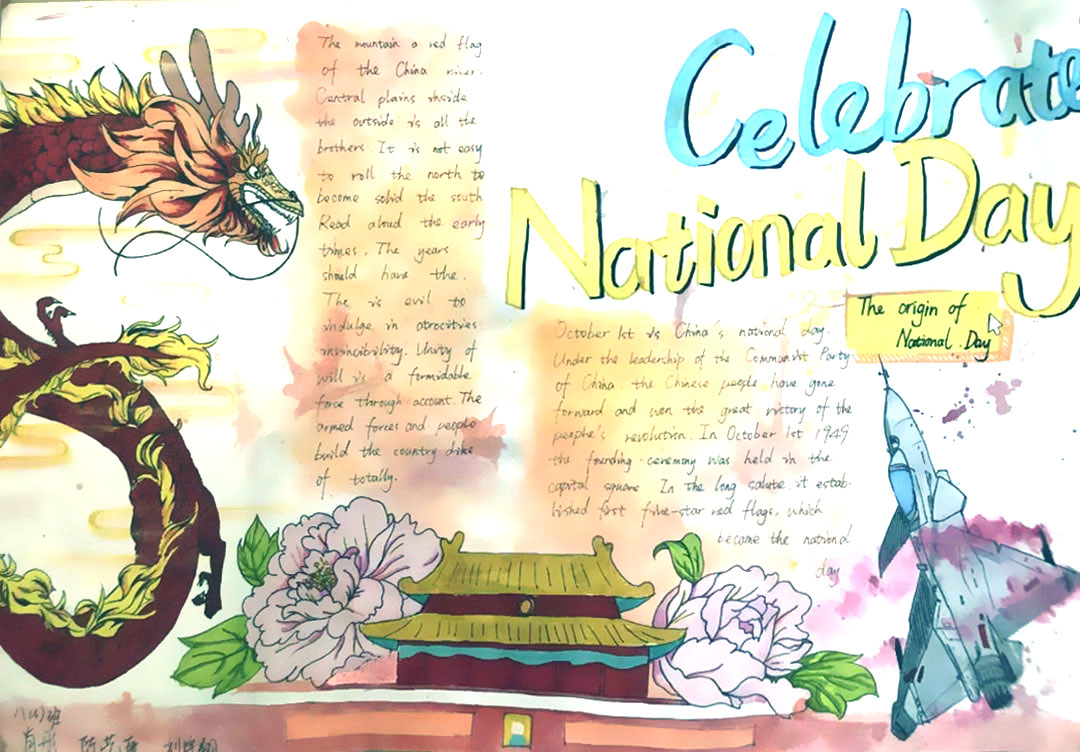 Celebrate
National Day
The mountain a red flag
of the China river.
Central plains inside
the outside is all the
brothers. It is not easy
to roll the north to
become solid the south
Read aloud the early
times. The years
should have the.
The is evil to
indulge in atrocities
invincibility. Unity of
will is a formidable
force through account. The
armed forces and people
build the country dike
of totally.
The origin of
National Day
October 1st is China's national day.
Under the leadership of the Communist Party
of China. the Chinese people have gone
forward and won the great victory of the
people's revolution. In October 1st 1949
the founding ceremony was held in the
capital square In the long salute. it estab-
lished first five-star red flags, which
became the national
day